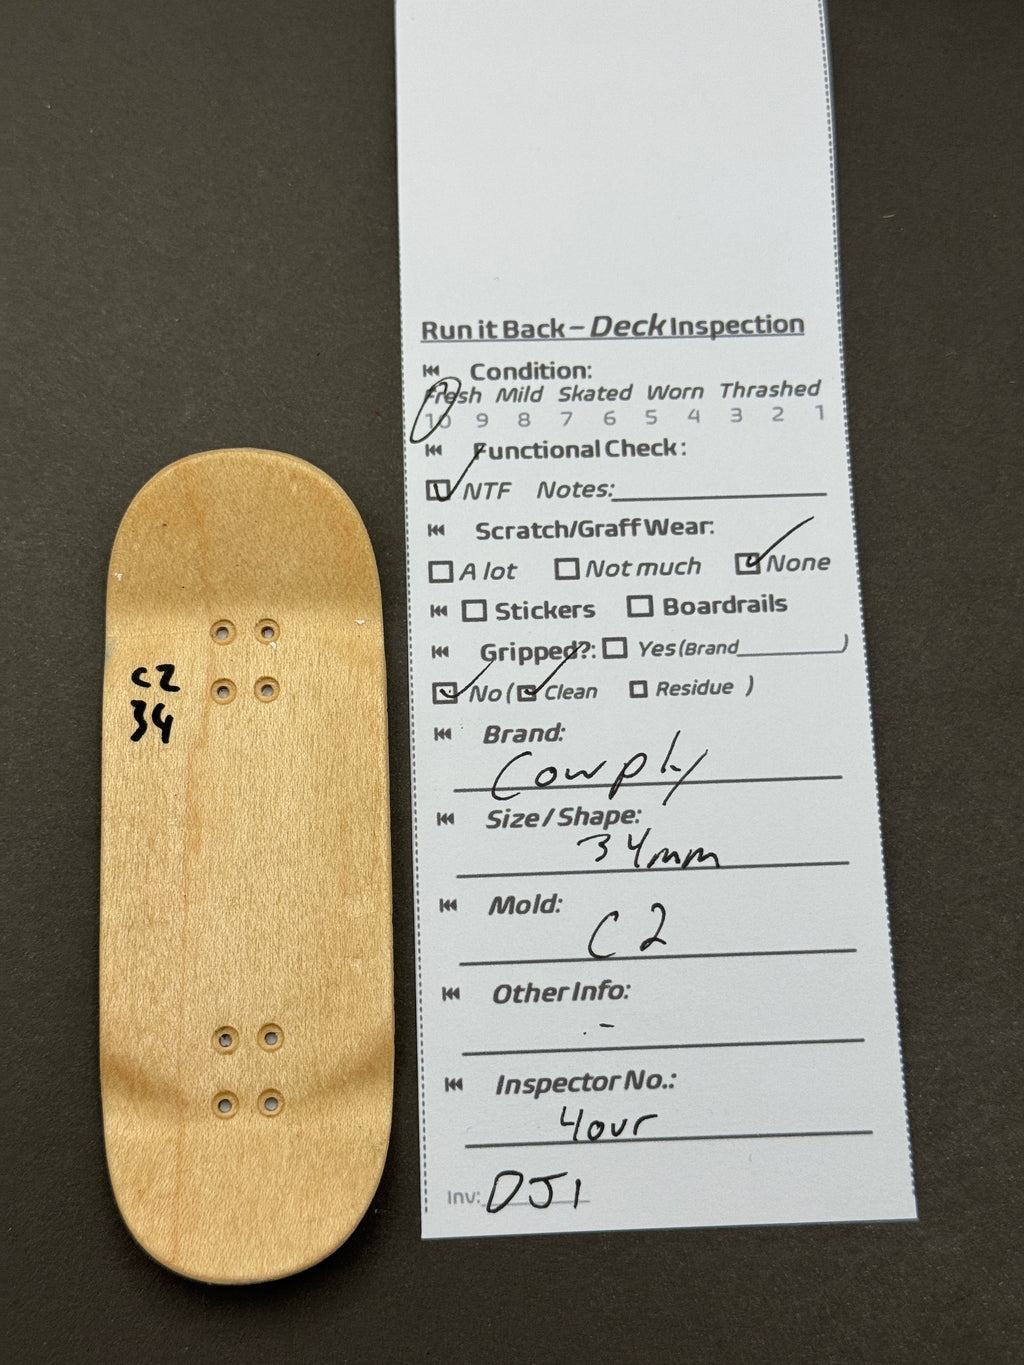 Run it Back – Deck Inspection
Condition:
Fresh Mild Skated Worn Thrashed
10 9 8 7 6 5 4 3 2 1
Functional Check:
NTF Notes:
Scratch/Graff Wear:
A lot Not much None
Stickers Boardrails
Gripped?: Yes (Brand )
No ( Clean Residue )
Brand:
Cowply
Size / Shape:
34mm
Mold:
C2
Other Info:
-
Inspector No.:
4our
Inv: DJ1
C2
34